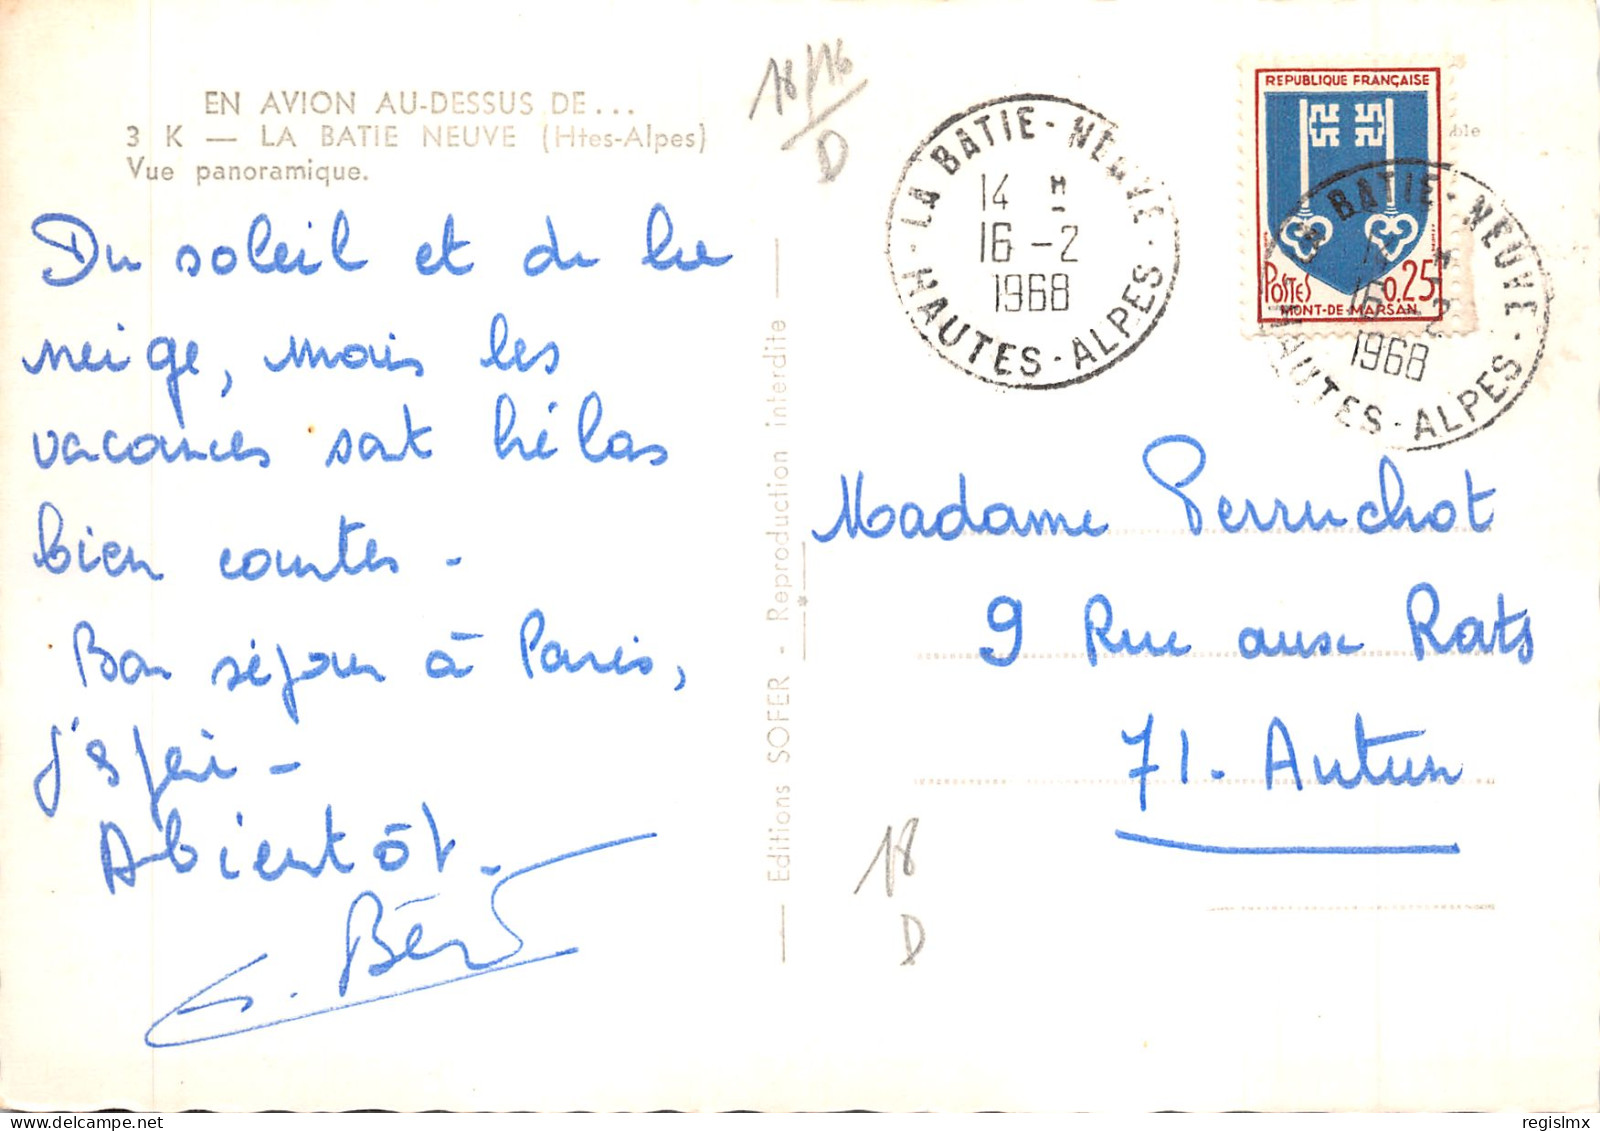 EN AVION AU-DESSUS DE...
3 K — LA BATIE NEUVE (Htes-Alpes)
Vue panoramique.
Du soleil et de la
neige, mais les
vacances sont hélas
bien courtes -
Bon séjour à Paris,
j'espère -
A bientôt.
Editions SOFER - Reproduction interdite
18/16
D
LA BATIE-NEUVE
14 H
16-2
1968
HAUTES-ALPES
REPUBLIQUE FRANÇAISE
POSTES 0,25
MONT-DE-MARSAN
BATIE-NEUVE
16 -2
1968
HAUTES-ALPES
Madame Perruchot
9 Rue aux Rats
71. Autun
18
D
regislmx